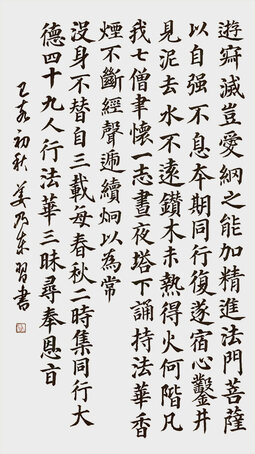 遊寂滅豈愛網之能加精進法門菩薩
以自强不息本期同行復遂宿心鑿井
見泥去水不遠鑽木未熱得火何階凡
我七僧聿懷一志晝夜塔下誦持法華香
煙不斷經聲遞續炯以為常
没身不替自三載每春秋二時集同行大
德四十九人行法華三昧尋奉恩旨
己亥初秋 姜乃东習書